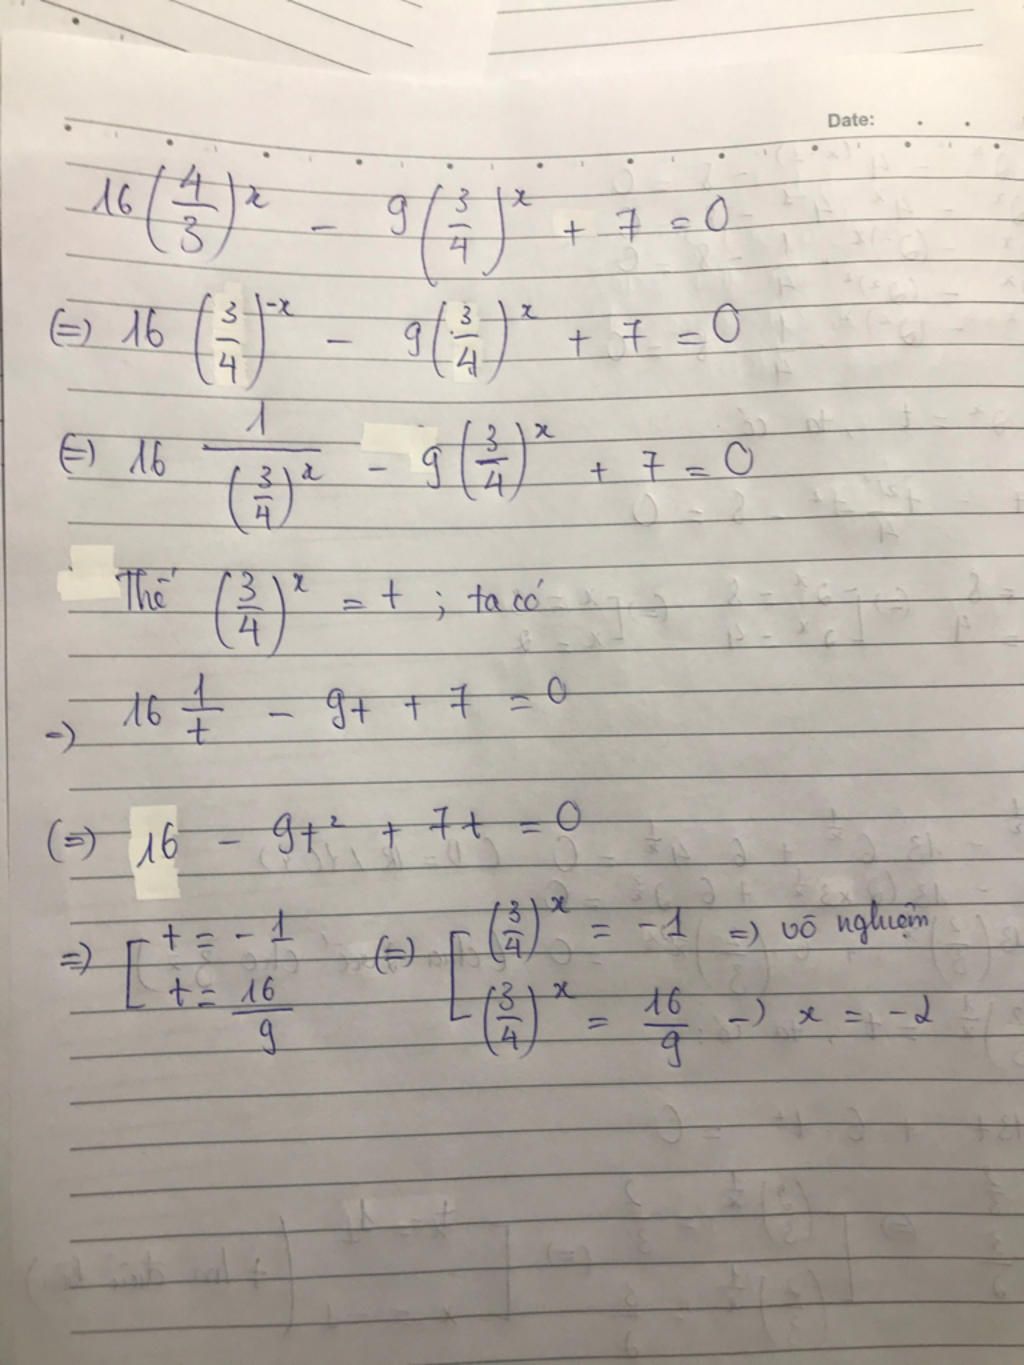 Date:
16(4/3)^x - 9(3/4)^x + 7 = 0
(=) 16(3/4)^-x - 9(3/4)^x + 7 = 0
(=) 16 1/(3/4)^x - 9(3/4)^x + 7 = 0
Thế (3/4)^x = t ; ta có
-) 16 1/t - 9t + 7 = 0
(=) 16 - 9t² + 7t = 0
=) [ t = -1 (=) [ (3/4)^x = -1 =) vô nghiệm
t = 16/9 (3/4)^x = 16/9 -) x = -2